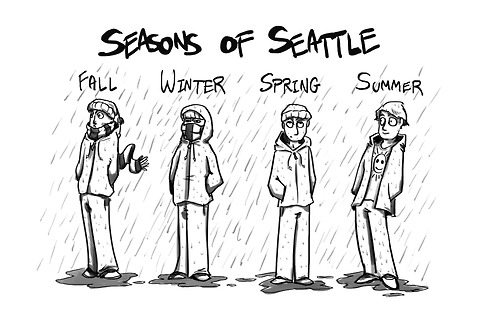 SEASONS OF SEATTLE
FALL WINTER SPRING SUMMER